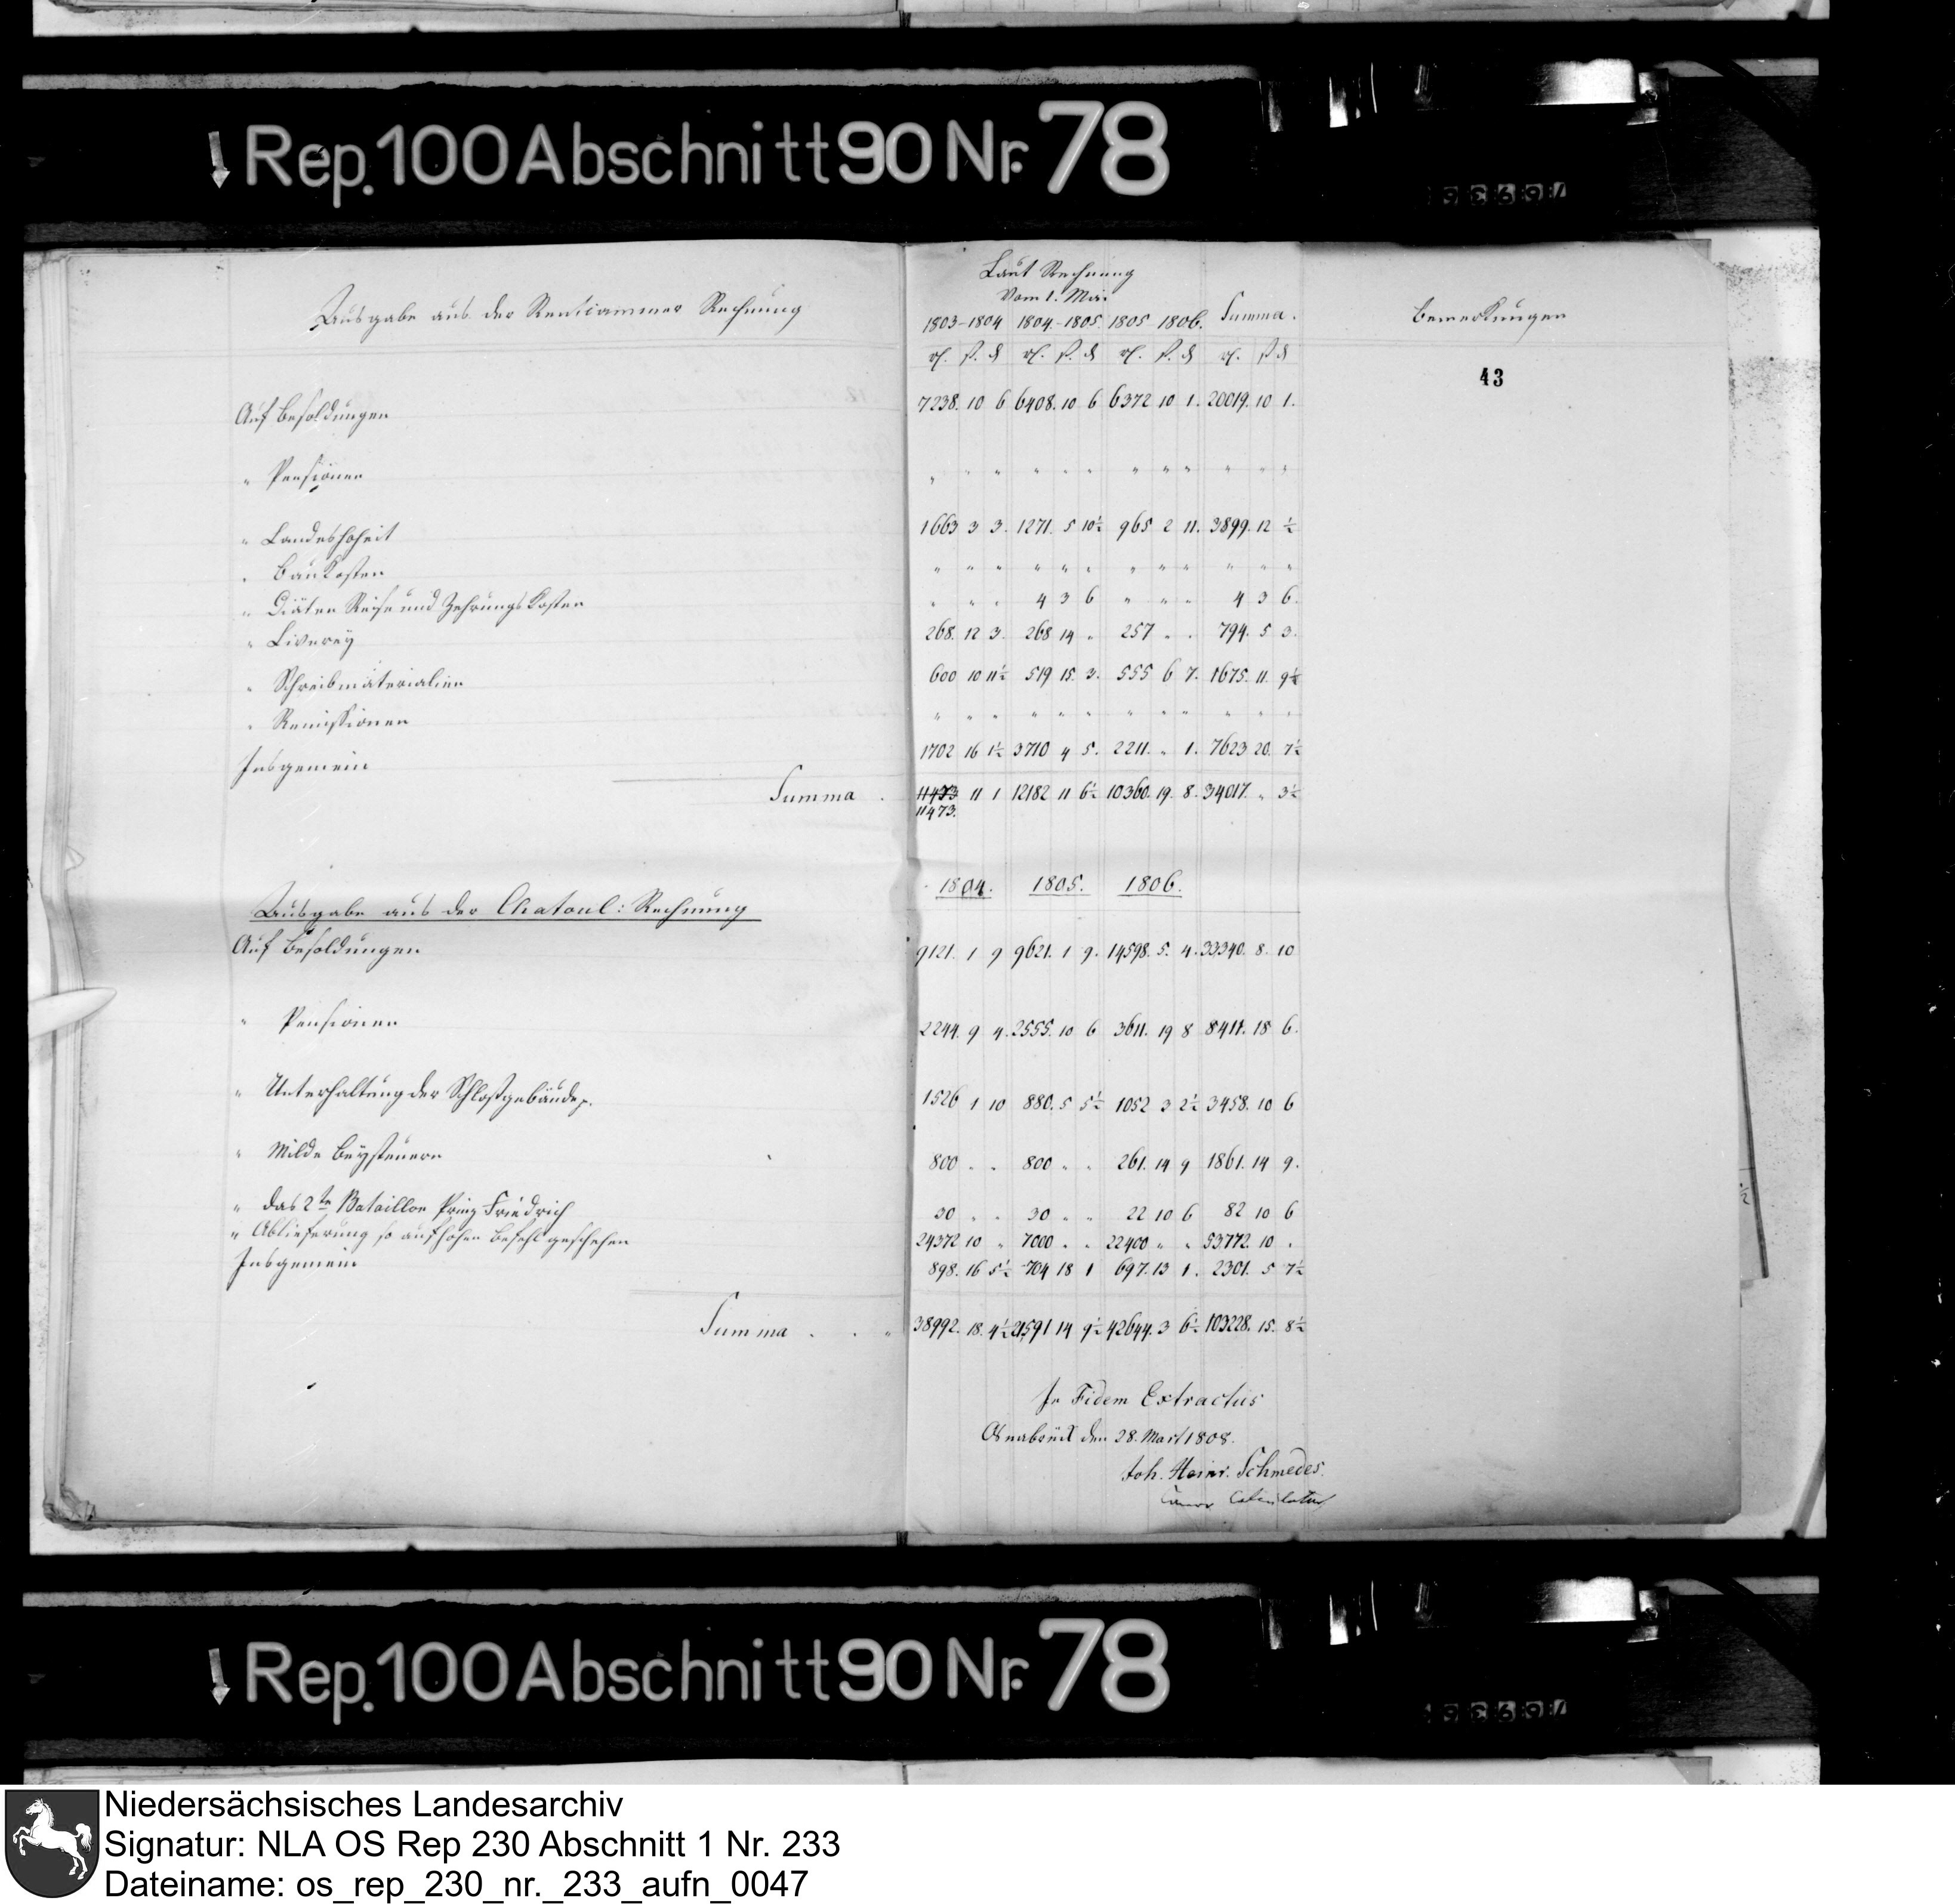 Rep. 100 Abschnitt 90 Nr. 78
Laut Rechnung
Vom 1. Mai
Ausgabe aus der Rentcammer Rechnung 1803-1804 1804.-1805. 1805 1806. Summa. Bemerkungen
rl. ß. d rl. ß. d rl. ß. d rl. ß d
43
Auf Besoldungen 7238. 10 6 6408. 10 6 6372 10 1. 20019. 10 1.
" Pensionen " " " " " " " " " " " "
" Landeshoheit 1663 3 3. 1271. 5 10½ 965 2 11. 3899. 12 ½
" Baukosten " " " " " " " " " " " "
" Diäten Reise und Zehrungskosten " " " 4 3 6 " " " 4 3 6.
" Liverey 268. 12 3. 268 14 " 257 " " 794. 5 3.
" Schreibmaterialien 600 10 11½ 519 15. 3. 555 6 7. 1675. 11. 9½
" Remissionen " " " " " " " " " " " "
Insgemein 1702 16 1½ 3710 4 5. 2211. " 1. 7623 20. 7½
Summa . 11 1 12182 11 6½ 10360. 19. 8. 34017. " 3½
11473.
1804. 1805. 1806.
Ausgabe aus der Chatoul: Rechnung
Auf Besoldungen 9121. 1 9 9621. 1 9. 14598. 5. 4. 33340. 8. 10
" Pensionen 2244. 9 4. 2555. 10 6 3611. 19 8 8411. 18 6.
" Unterhaltung der Schloßgebäude p. 1526 1 10 880. 5 5½ 1052 3 2½ 3458. 10 6
" Milde Beysteuern 800 " " 800 " " 261. 14 9 1861. 14 9.
" das 2te Bataillon Prinz Friedrich 30 " " 30 " " 22 10 6 82 10 6
" Ablieferung so auf hohen Befehl geschehen 24372 10 " 7000 " " 22400 " " 53772. 10 "
Insgemein 898. 16 5½ 704 18 1 697. 13 1. 2301. 5 7½
Summa . . " 38992. 18. 4½ 21591 14 9½ 42644. 3 6½ 103228. 15. 8½
In Fidem Extractus
Osnabrück den 28. Mart 1808.
Joh. Heinr. Schmedes.
Calculator
Rep. 100 Abschnitt 90 Nr. 78
Niedersächsisches Landesarchiv
Signatur: NLA OS Rep 230 Abschnitt 1 Nr. 233
Dateiname: os_rep_230_nr._233_aufn_0047